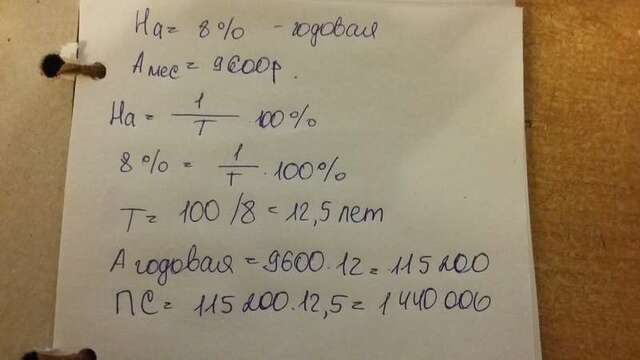 На = 8% - годовая
Амес = 9600р.
На = 1/Т · 100%
8% = 1/Т · 100%
Т = 100/8 = 12,5 лет
А годовая = 9600 · 12 = 115 200
ПС = 115 200 · 12,5 = 1 440 000